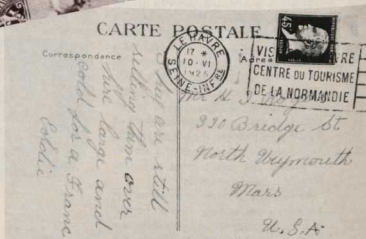 CARTE POSTALE
Correspondance
Adresse
LE HAVRE
17 *
10 - VI
1926
SEINE-INFRE
45c
VIS
RE
CENTRE DU TOURISME
DE LA NORMANDIE
They are still
selling them over
here large and
cold for a Franc
Eddie
Mr H
330 Bridge St
North Weymouth
Mass
U.S.A